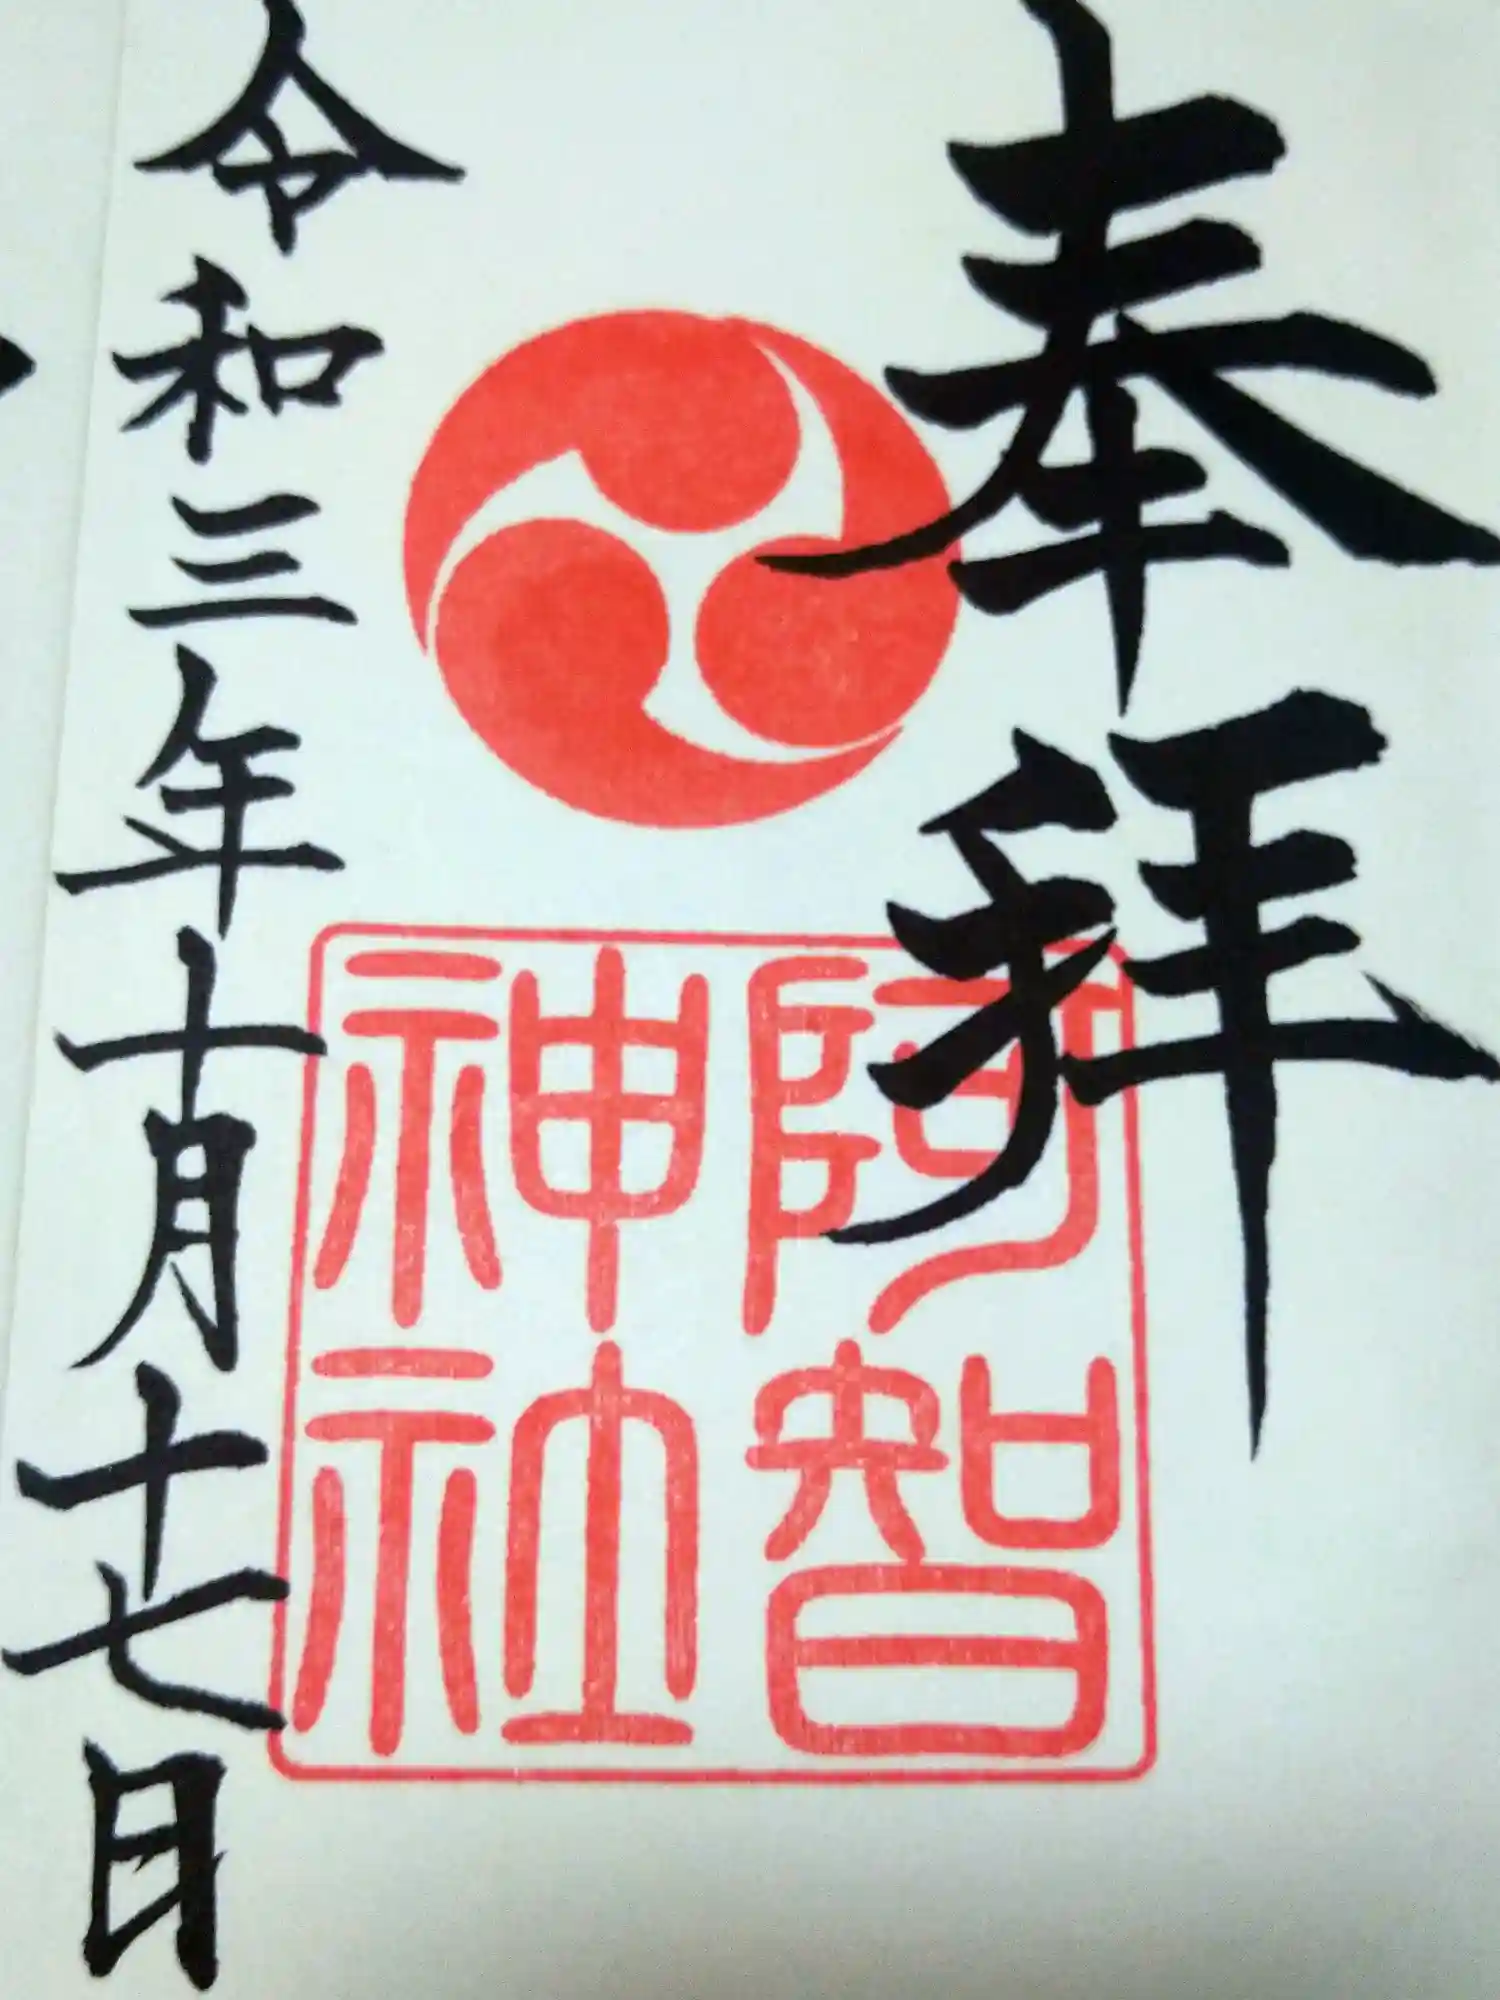 奉拝
阿智
神社
令和三年十月十七日